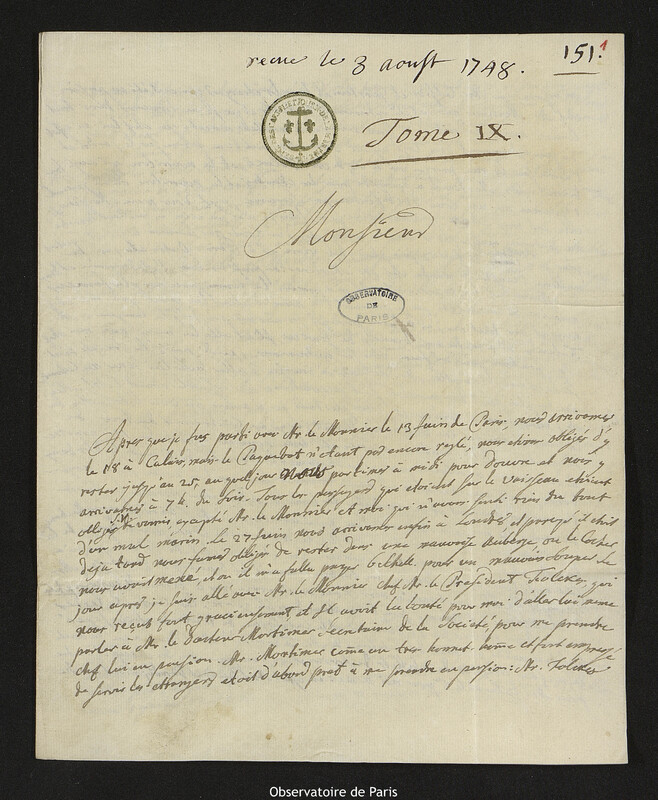 recue le 3 aoust 1748.
151.
1
Tome IX.
Monsieur
OBSERVATOIRE
DE
PARIS
Apres que je fus parti avec Mr. le Monnier le 13 Juin de Paris, nous arrivames
le 18 à Calais, mais le Paquebot n'étant pas encore reglé, nous etions obligés d'y
rester jusqu'au 25, au quel jour nous partimes à midi pour Douvre et nous y
arrivames à 7 h. du soir. Tous les passagers qui etoient sur le vaisseau etoient
obligés de vomir excepté Mr. le Monnier et moi qui n'avons senti rien du tout
d'un mal marin. Le 27 Juin nous arrivames enfin à Londres, et parceq' il etoit
deja tard nous fumes obligé de rester dans une mauvaise Auberge ou le Cocher
nous avoit mené, et ou il m'a fallu payer pour un mauvais souper. Le
jour aprés je suis allé avec Mr. le Monnier chez Mr. le President Folckes, qui
nous reçut fort gracieusement, et Il avoit la bonté pour moi d'aller lui meme
parler à Mr. le Docteur Mortimer Secretaire de la Societé, pour me prendre
chez lui en pension. Mr. Mortimer come un tres honnet home et fort empressé
de servir les etrangers etoit d'abord pret à me prendre en pension: Mr. Folckes
Observatoire de Paris